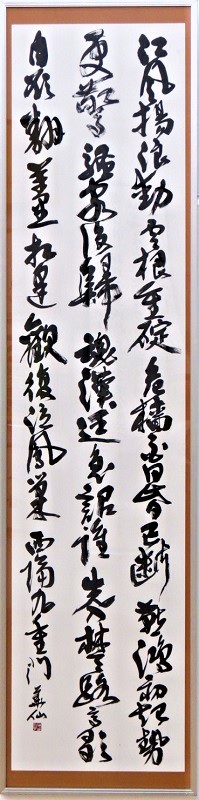 江風揚浪動雲根重碇危檣白日昏已断燕鴻初起勢
更驚騷客後歸魂漢廷急詔誰先入楚路高歌
自欲翻萬里相逢歡復泣鳳巢西隔九重門 華仙